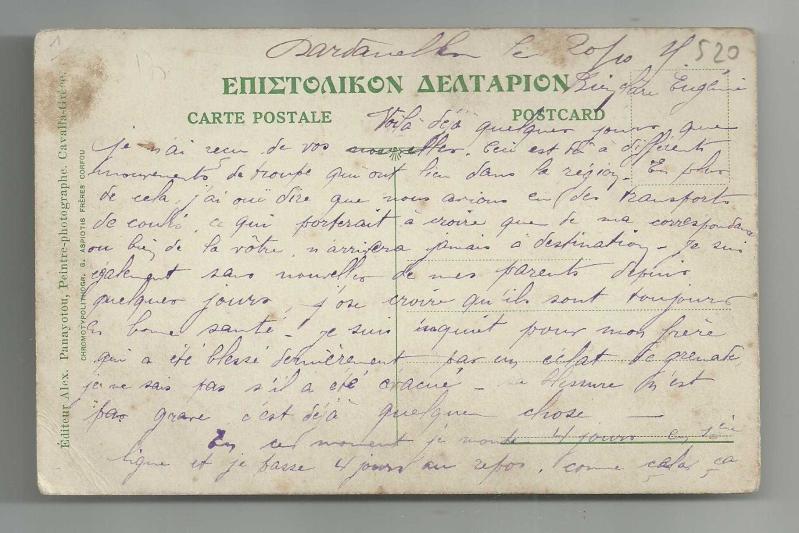 Dardanelles le 20/10 15
520
ΕΠΙΣΤΟΛΙΚΟΝ ΔΕΛΤΑΡΙΟΝ
Bien chère Eugénie
CARTE POSTALE
POSTCARD
Voilà déjà quelques jours que
je n'ai reçu de vos nouvelles. Ceci est dû à différents
mouvements de troupe qui ont lieu dans la région. En plus
de cela, j'ai ouï dire que nous avions eu des transports
de coulés, ce qui porterait à croire que de ma correspondance
ou bien de la votre, n'arrivera jamais à destination. Je suis
également sans nouvelles de mes parents depuis
quelques jours, j'ose croire qu'ils sont toujours
en bonne santé. Je suis inquiet pour mon frère
qui a été blessé dernièrement par un éclat de grenade
je ne sais pas s'il a été évacué - sa blessure n'est
pas grave c'est déjà quelque chose -
En ce moment je monte 4 jours en 1ère
ligne et je passe 4 jours au repos. comme cela ça
Éditeur Alex. Panayotou, Peintre-photographe. Cavalla-Grèce.
CHROMOTYPOLITHOGR. G. ASPIOTIS FRÈRES CORFOU